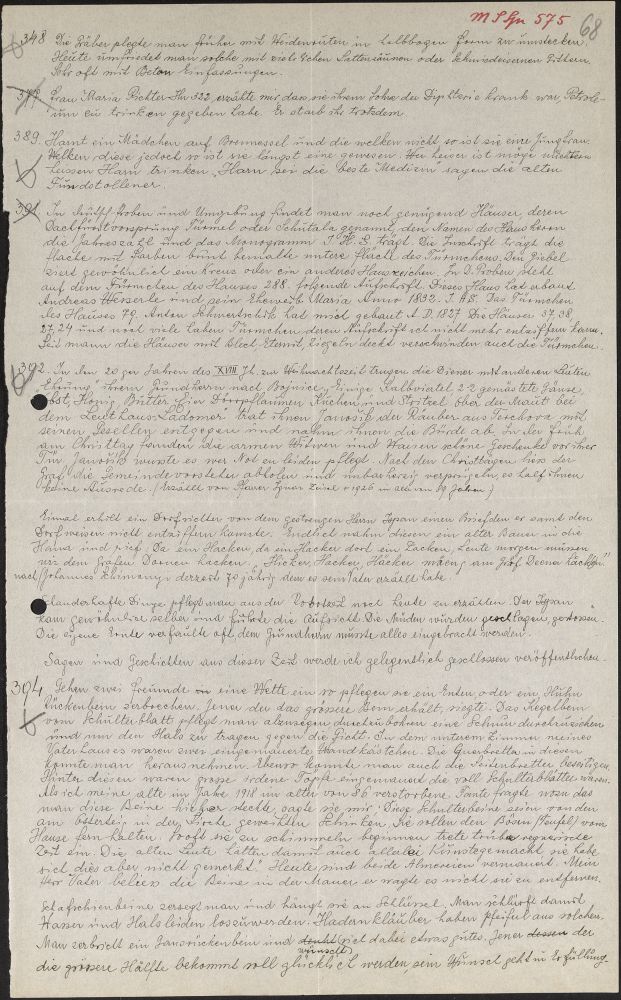 M S Gn 575
68
348 Die Gräber plegte man früher mit Weidenruten in halbbogen form zu umstecken.
Heute umfriedet man solche mit eichen Lattenzäunen oder Schmiedeisernen Gittern.
Sehr oft mit Beton Einfassungen.
Frau Maria Richter Hs. 322 erzählte mir dass sie ihrem Sohne der Dipkterie krank war, Petrole-
um ein trinken gegeben habe. Er starb ihr trotzdem.
389. Harnt ein Mädchen auf Brennessel und die welken nicht so ist sie eine Jungfrau.
Welken diese jedoch so ist sie längst eine gewesen. Wer heiser ist möge
heissen Harn trinken. Harn sei die beste Medizin sagen die alten
Fundstollener.
391 In Deutsch Proben und Umgebung findet man noch genügend Häuser, deren
Dachfirstvorsprung Türmel oder Schutala genannt, den Namen des Hausherrn
die Jahreszahl und das Monogramm J. H. S. trägt. Die Inschrift trägt die
flache mit Farben bunt bemalte untere fläche des Türmchens. Den Giebel
ziert gewöhnlich ein Kreuz oder ein anderes Hauszeichen. In D. Proben steht
auf dem Türmchen des Hauses 288. folgende Aufschrift. Dieses Haus hat erbaut
Andreas Henserle und sein Eheweib Maria Anno 1832. J. H S. Das Türmchen
des Hauses 79. Anton Schmertschik hat mich gebaut A D. 1827 Die Häuser 37, 38,
27, 24 und noch viele haben Türmchen deren Aufschrift ich nicht mehr entziffern kann.
Seit mann die Häuser mit Blech Eternit, Ziegeln deckt verschwinden auch die Türmchen.
392. In den 20 ger Jahren des XVIII Jh. zur Weihnachtszeit trugen die Diener mit anderen Leuten
"Ehrung" ihrem Grundherrn nach Bojnice. Einige Kalbviertel 2-2 gemästete Gänse,
Obst, Honig, Butter, Eier, Dörrpflaumen Kuchen und Stritzel. Ober der Mautt bei
dem Leuthaus "Ladomer" trat ihnen Janošik der Räuber aus Terchova mit
seinen Gesellen entgegen und nahm ihnen die Bürde ab. In der Früh
am Christtag fanden die armen Witwen und Waisen schöne Geschenke vor ihrer
Tür. Janošik wusste es wer Not zu leiden pflegt. Nach den Christtagen liess der
Graf die Gemeindevorsteher abholen und unbarherzig verprügeln, es half ihnen
keine Ausrede. (Erzählt von Pfarrer Ignaz Zuzel 1926 in alter von 79 Jahren)
Einmal erhilt ein Dorfrichter von dem gestrengen Herrn Ispan einen Brief den er samt den
Dorfweisen nicht entziffern kannte. Endlich nahm diesen ein alter Bauer in die
Hand und rief: Da ein Hacken, da ein Hacker dort ein Zacken, Leute morgen müssen
wir dem Grafen Dornen hacken. "Hicker, Hacker, Häcker mäeng am Gröf Deener häckhn"
nach Johannes Schmerung derzeit 70 jährig dem es sein Vater erzählt habe.
Schauderhafte Dinge pflegt man aus der Robotzeit noch heute zu erzählen. Der Ispan
kam gewöhnlich selber und führte die Aufsicht. Die Müden wurden geschlagen, gestossen.
Die eigene Ernte verfaulte oft, dem Grundherrn musste alles eingebracht werden.
Sagen und Geschichten aus dieser Zeit werde ich gelegentlich geschlossen veröffentlichen.
394 Gehen zwei Freunde eine Wette ein so pflegen sie ein Enten, oder ein Huhn
rückenbein zerbrechen. Jener der das grössere Bein erhält, siegte. Das Kegelbein
vom Schulterblatt pflegt man abzusägen durchzubohren eine Schnur durchzuziehen
und um den Hals zu tragen gegen die Gicht. In dem unteren Zimmer meines
Vaterhauses waren zwei eingemauerte Wandkästchen. Die Querbretter in diesen
konnte man herausnehmen. Ebenso konnte man auch die Seitenbretter beseitigen.
Hinter diesen waren grosse irdene Töpfe eingemauerd die voll Schulterblätter waren.
Als ich meine alte im Jahre 1918 im alter von 86 verstorbene Tante fragte wozu das
man diese Beine hieher steckte, sagte sie mir: "Diese Schulterbeine seien von den
am Ostersteig in der Kirche geweihten Schinken. Sie sollen den Bösen (Teufel) vom
Hause fern halten. Sooft sie zu schimmeln beginnen trete trübe regnerische
Zeit ein. Die alten Leute hatten damit auch allerlei Künste gemacht sie habe
sich dies aber nicht gemerkt." Heute sind beide Almereien vermauert. Mein
Herr Vater beliess die Beine in der Mauer er wagte es nicht sie zu entfernen.
Schafschienbeine zersegt man und hängt sie an Schlüssel. Man schlürft damit
Wasser und Halsleiden loszuwerden. Hadernklauber haben pfeiferl aus solchen.
Man zerbricht ein Gansrückenbein und wünscht sich dabei etwas gutes. Jener der
die grössere Hälfte bekommt soll glücklich werden sein Wunsch geht in Erfüllung.